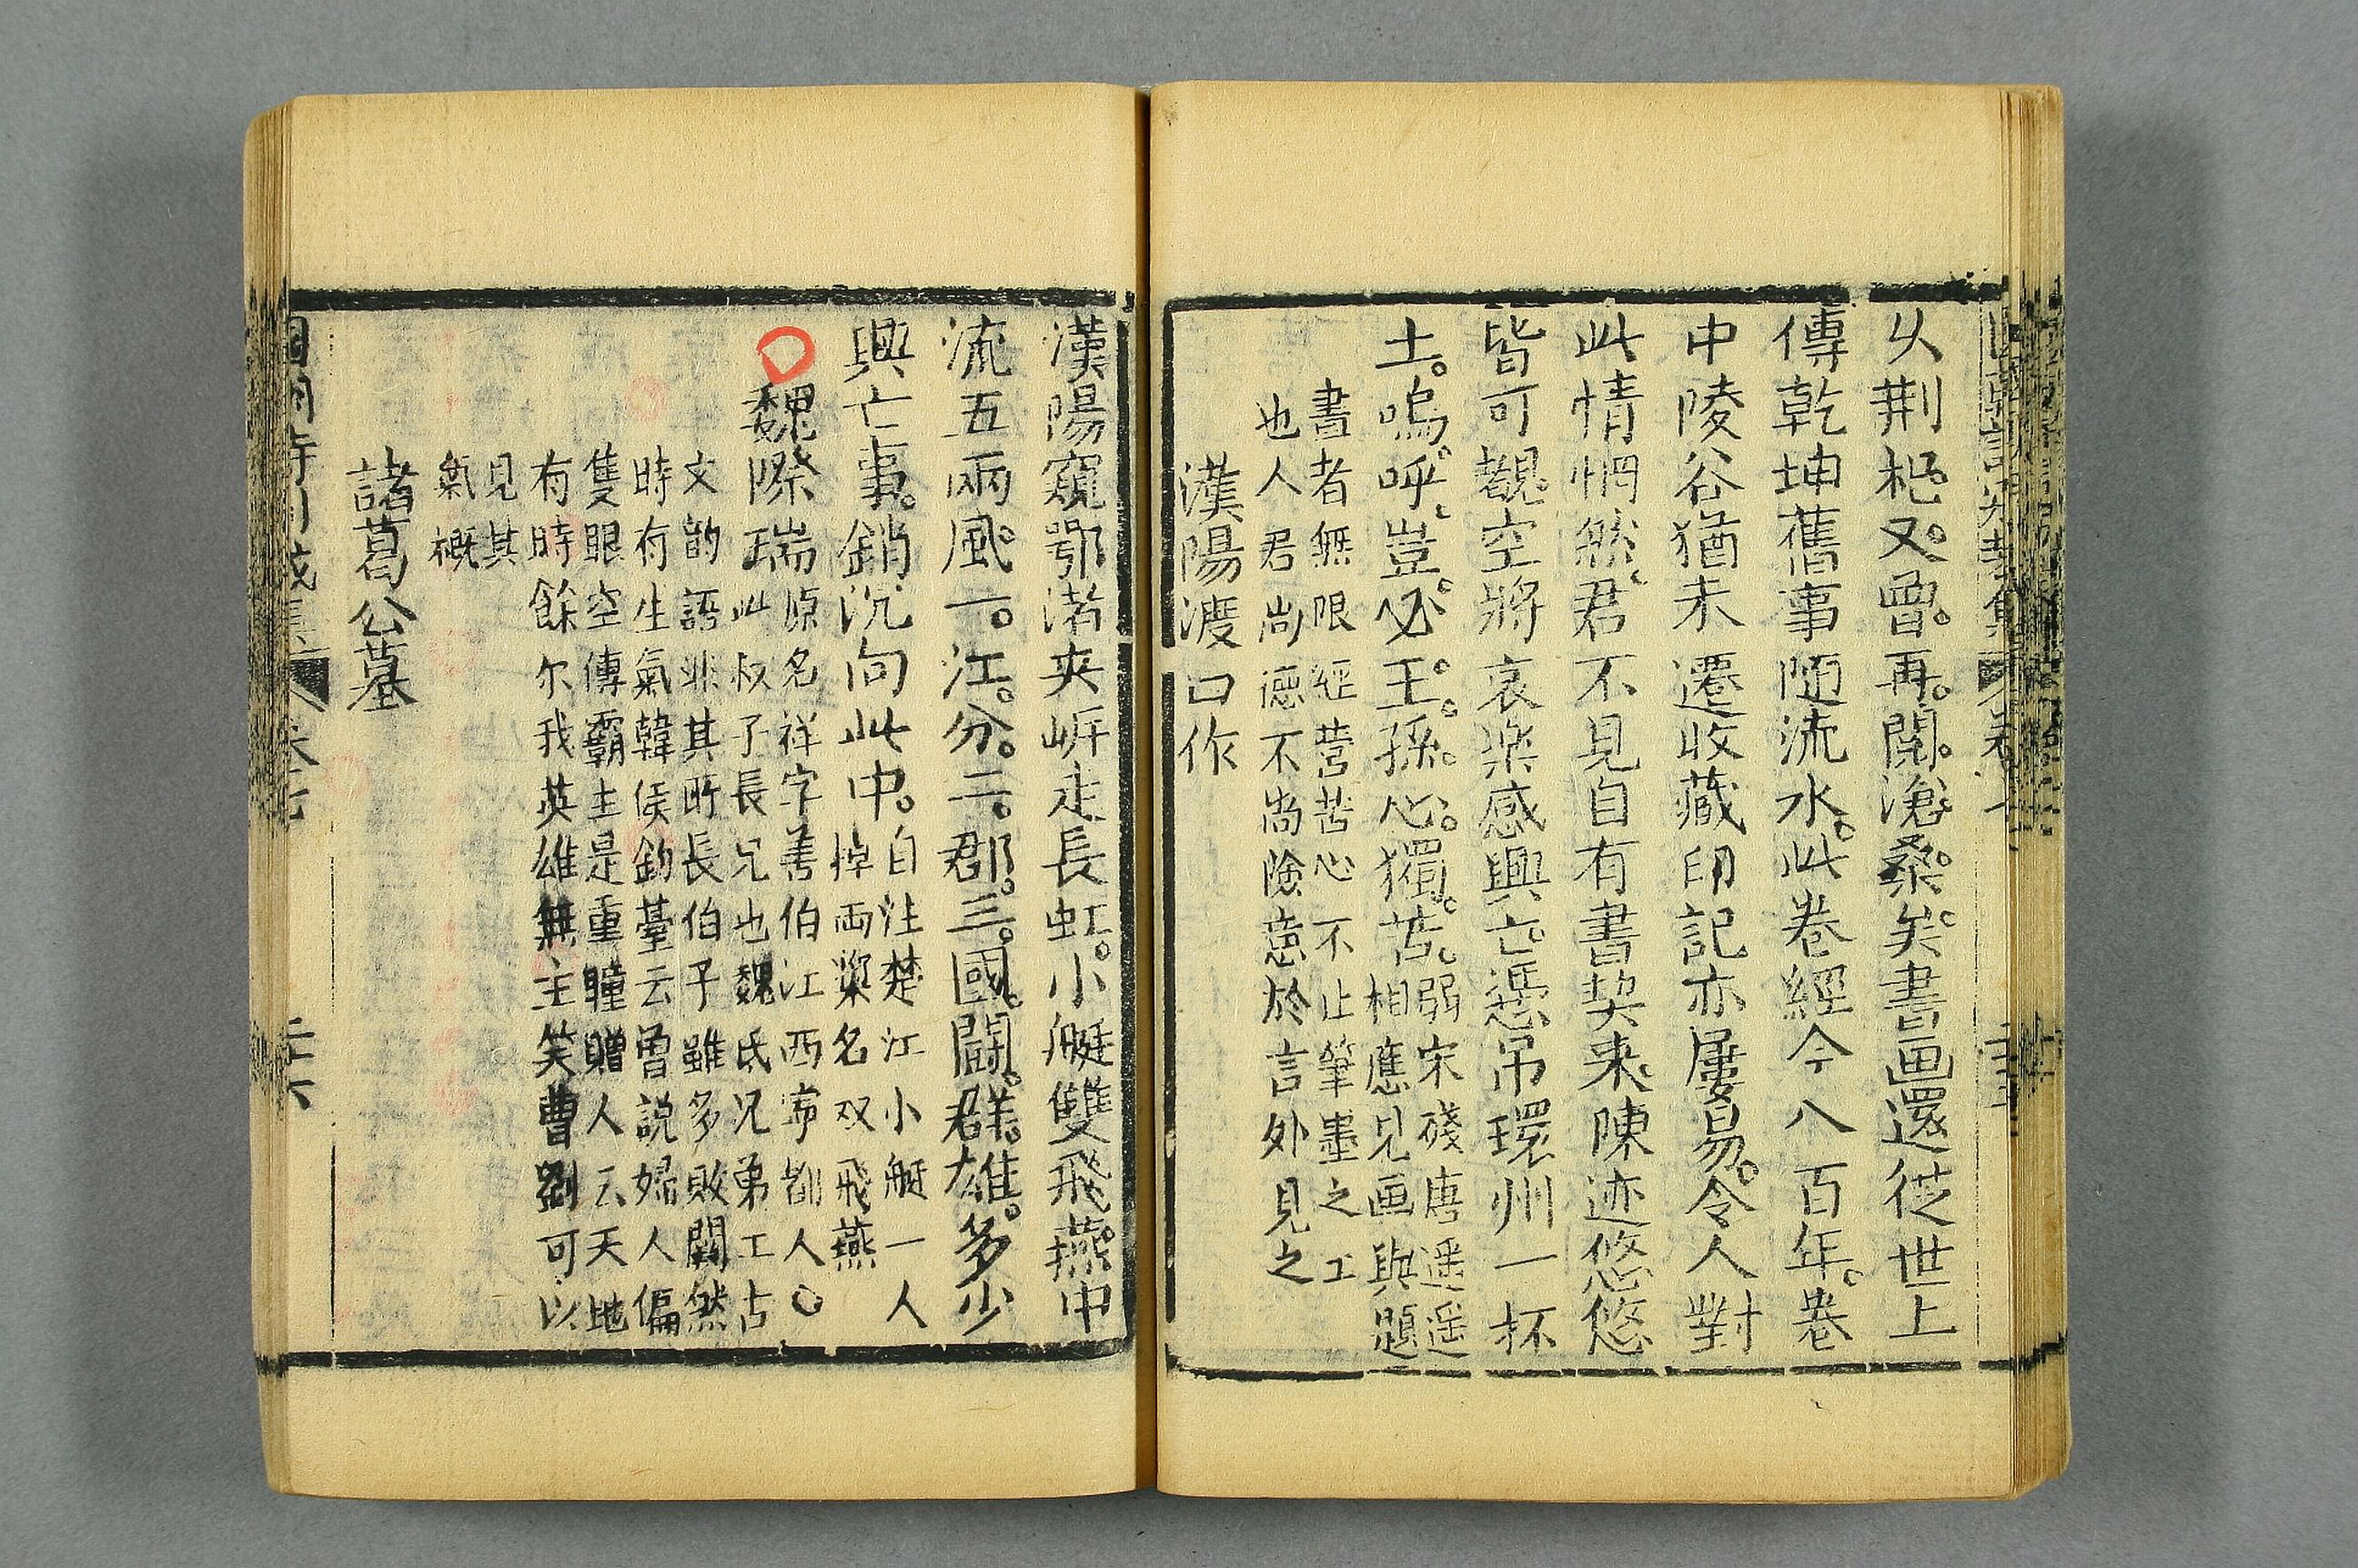 从荆杞又曾再閱滄桑矣書画還從世上
傳乾坤舊事随流水此卷經今八百年卷
中陵谷猶未遷收藏印記亦屢易令人對
此情惘然君不見自有書契来陳迹悠悠
皆可覩空將哀樂感興亡憑吊環州一杯
土嗚呼豈必王孫心獨苦
弱宋殘唐遥遥
相應見画與題
書者無限經营苦心不止筆墨之工
也人君尚德不尚險意於言外見之
漢陽渡口作
漢陽窺鄂渚夾岍走長虹小艇雙飛燕中
流五兩風一江分二郡三國鬪群雄多少
興亡事銷沉向此中
自注楚江小艇一人
掉两槳名双飛燕
魏際瑞
原名祥字善伯江西寕都人○
此叔子長兄也魏氏兄弟工古
文韵語非其所長伯子雖多敗闕然
時有生氣韓侯釣臺云曾説婦人偏
隻眼空傳霸主是重瞳贈人云天地
有時餘尔我英雄無主笑曹劉可以
見其
氣概
諸葛公墓
卷七
二十六